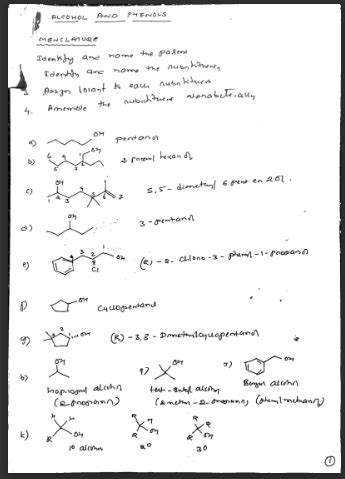 ALCOHOL AND PHENOLS
MENCLATURE
Identify and name the parent
Identify and name the substituents
Assign locant to each substituent
4. Assemble the substituent alphabetically
a) OH pentanol
b) 6 5 4 3 2 1 OH 2 propyl hexanol
c) OH 1 2 3 4 5 6 7 5,5-dimethyl 6 en 2 ol.
d) OH 3-pentanol
e) 3 2 1 OH Cl (R)-2-chloro-3-phenyl-1-propanol
f) OH Cyclopentanol
g) 3 OH (R)-3,3-Dimethylcyclopentanol
h) OH i) OH j) OH
Isopropyl alcohol tert-butyl alcohol Benzyl alcohol
(2-propanol) (2-methyl-2-propanol) (phenylmethanol)
k) H H R OH R H R OH R R R OH
1° alcohol 2° 3°
1